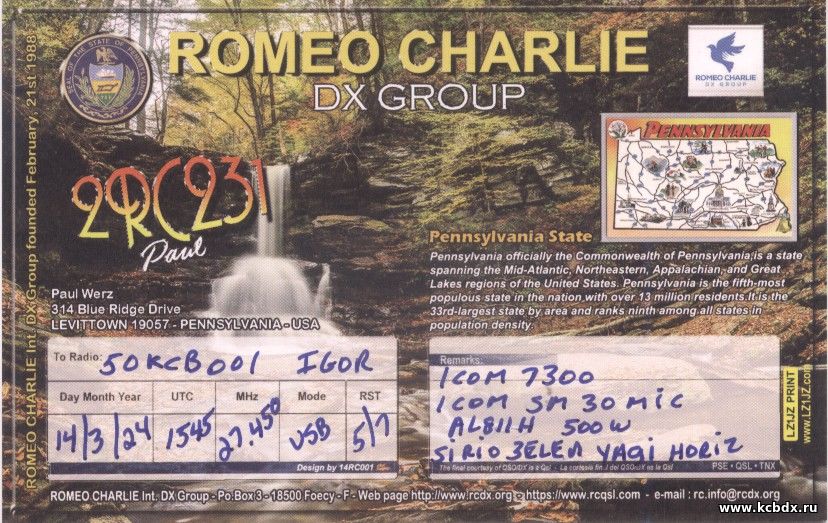 ROMEO CHARLIE
DX GROUP
ROMEO CHARLIE
DX GROUP
ROMEO CHARLIE Int. DX Group founded February, 21st 1988
PENNSYLVANIA
2RC231
Paul
Pennsylvania State
Pennsylvania officially the Commonwealth of Pennsylvania,is a state
spanning the Mid-Atlantic, Northeastern, Appalachian, and Great
Lakes regions of the United States. Pennsylvania is the fifth-most
populous state in the nation with over 13 million residents.It is the
33rd-largest state by area and ranks ninth among all states in
population density.
Paul Werz
314 Blue Ridge Drive
LEVITTOWN 19057 - PENNSYLVANIA - USA
To Radio: 50KCB001 IGOR
Day Month Year UTC MHz Mode RST
14/3/24 1545 27.450 USB 5/7
Design by 14RC001
Remarks:
ICOM 7300
ICOM SM 30 MIC
AL811H 500W
SIRIO 3ELEM YAGI HORIZ
The final courtesy of QSO/DX is a Qsl - La cortesia fin.l del QSO/DX es la Qsl
PSE • QSL • TNX
LZ1JZ PRINT
www.LZ1JZ.com
ROMEO CHARLIE Int. DX Group - Po.Box 3 - 18500 Foecy - F - Web page http://www.rcdx.org - https://www.rcqsl.com - e-mail : rc.info@rcdx.org
www.kcbdx.ru